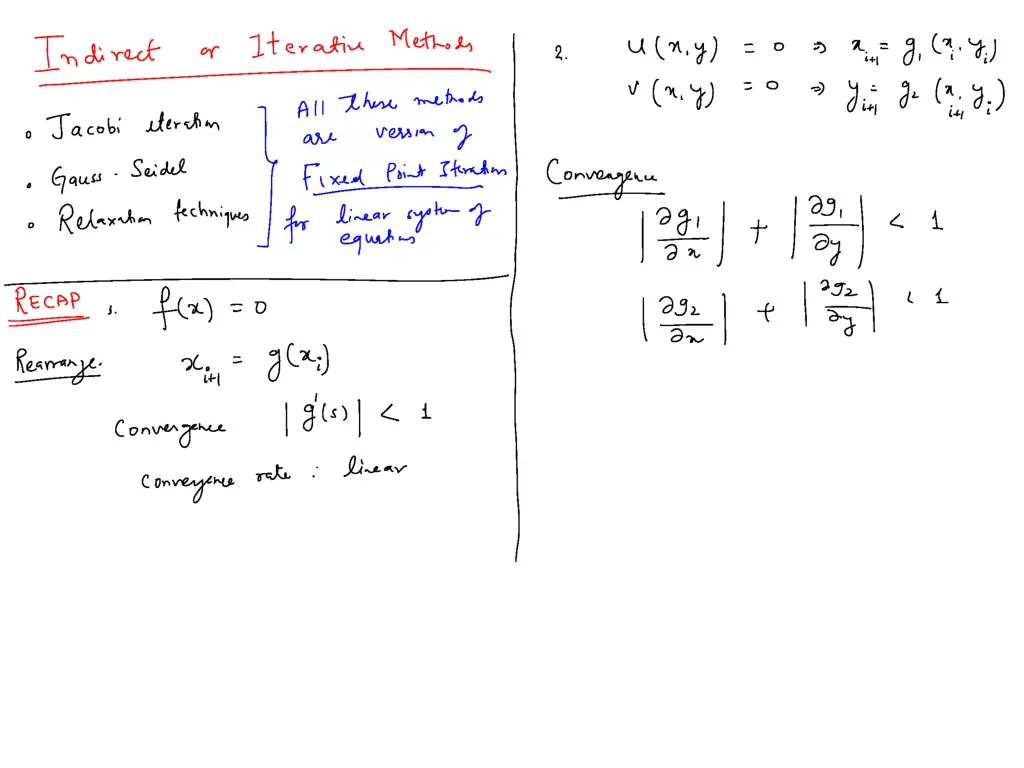 Indirect or Iterative Methods
• Jacobi iteration
• Gauss - Seidel
• Relaxation techniques
All these methods
are version of
Fixed Point Iteration
for linear system of
equations
RECAP 1. f(x) = 0
Rearrange. x_{i+1} = g(x_i)
Convergence |g'(s)| < 1
Convergence rate : linear
2. u(x,y) = 0 ⇒ x_{i+1} = g_1(x_i, y_i)
v(x,y) = 0 ⇒ y_{i+1} = g_2(x_{i+1}, y_i)
Convergence
|∂g_1/∂x| + |∂g_1/∂y| < 1
|∂g_2/∂x| + |∂g_2/∂y| < 1